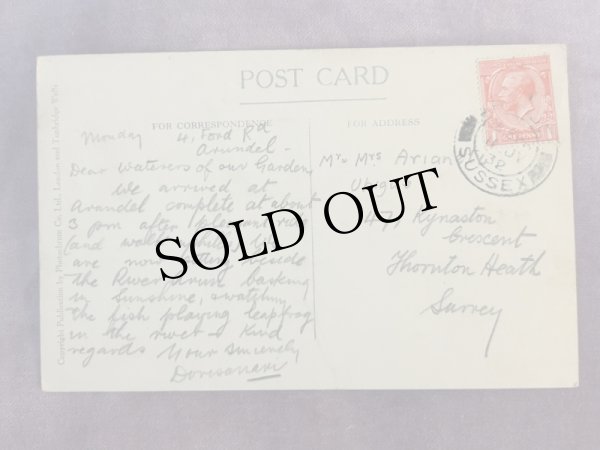 POST CARD
FOR CORRESPONDENCE
FOR ADDRESS
Monday 4, Ford Rd
Arundel.
Dear Waterers of our Garden,
We arrived at
Arundel complete at about
3 pm after
are now
the River basking
in Sunshine, watching
the fish playing leapfrog
in the river. Kind
regards Your sincerely
Mr. Mrs Arian
47, Kynaston
Crescent
Thornton Heath
Surrey
SUSSEX
SOLD OUT
Copyright Publication by Photochrom Co. Ltd., London and Tunbridge Wells